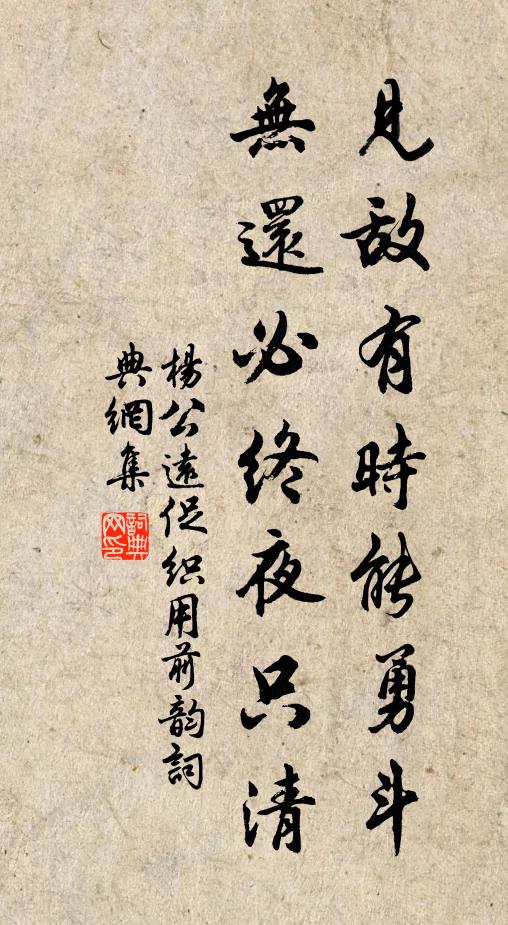 見敌有時能勇斗
無還必終夜只清
楊公遠促織用前韵詞
典網集
詞典网印